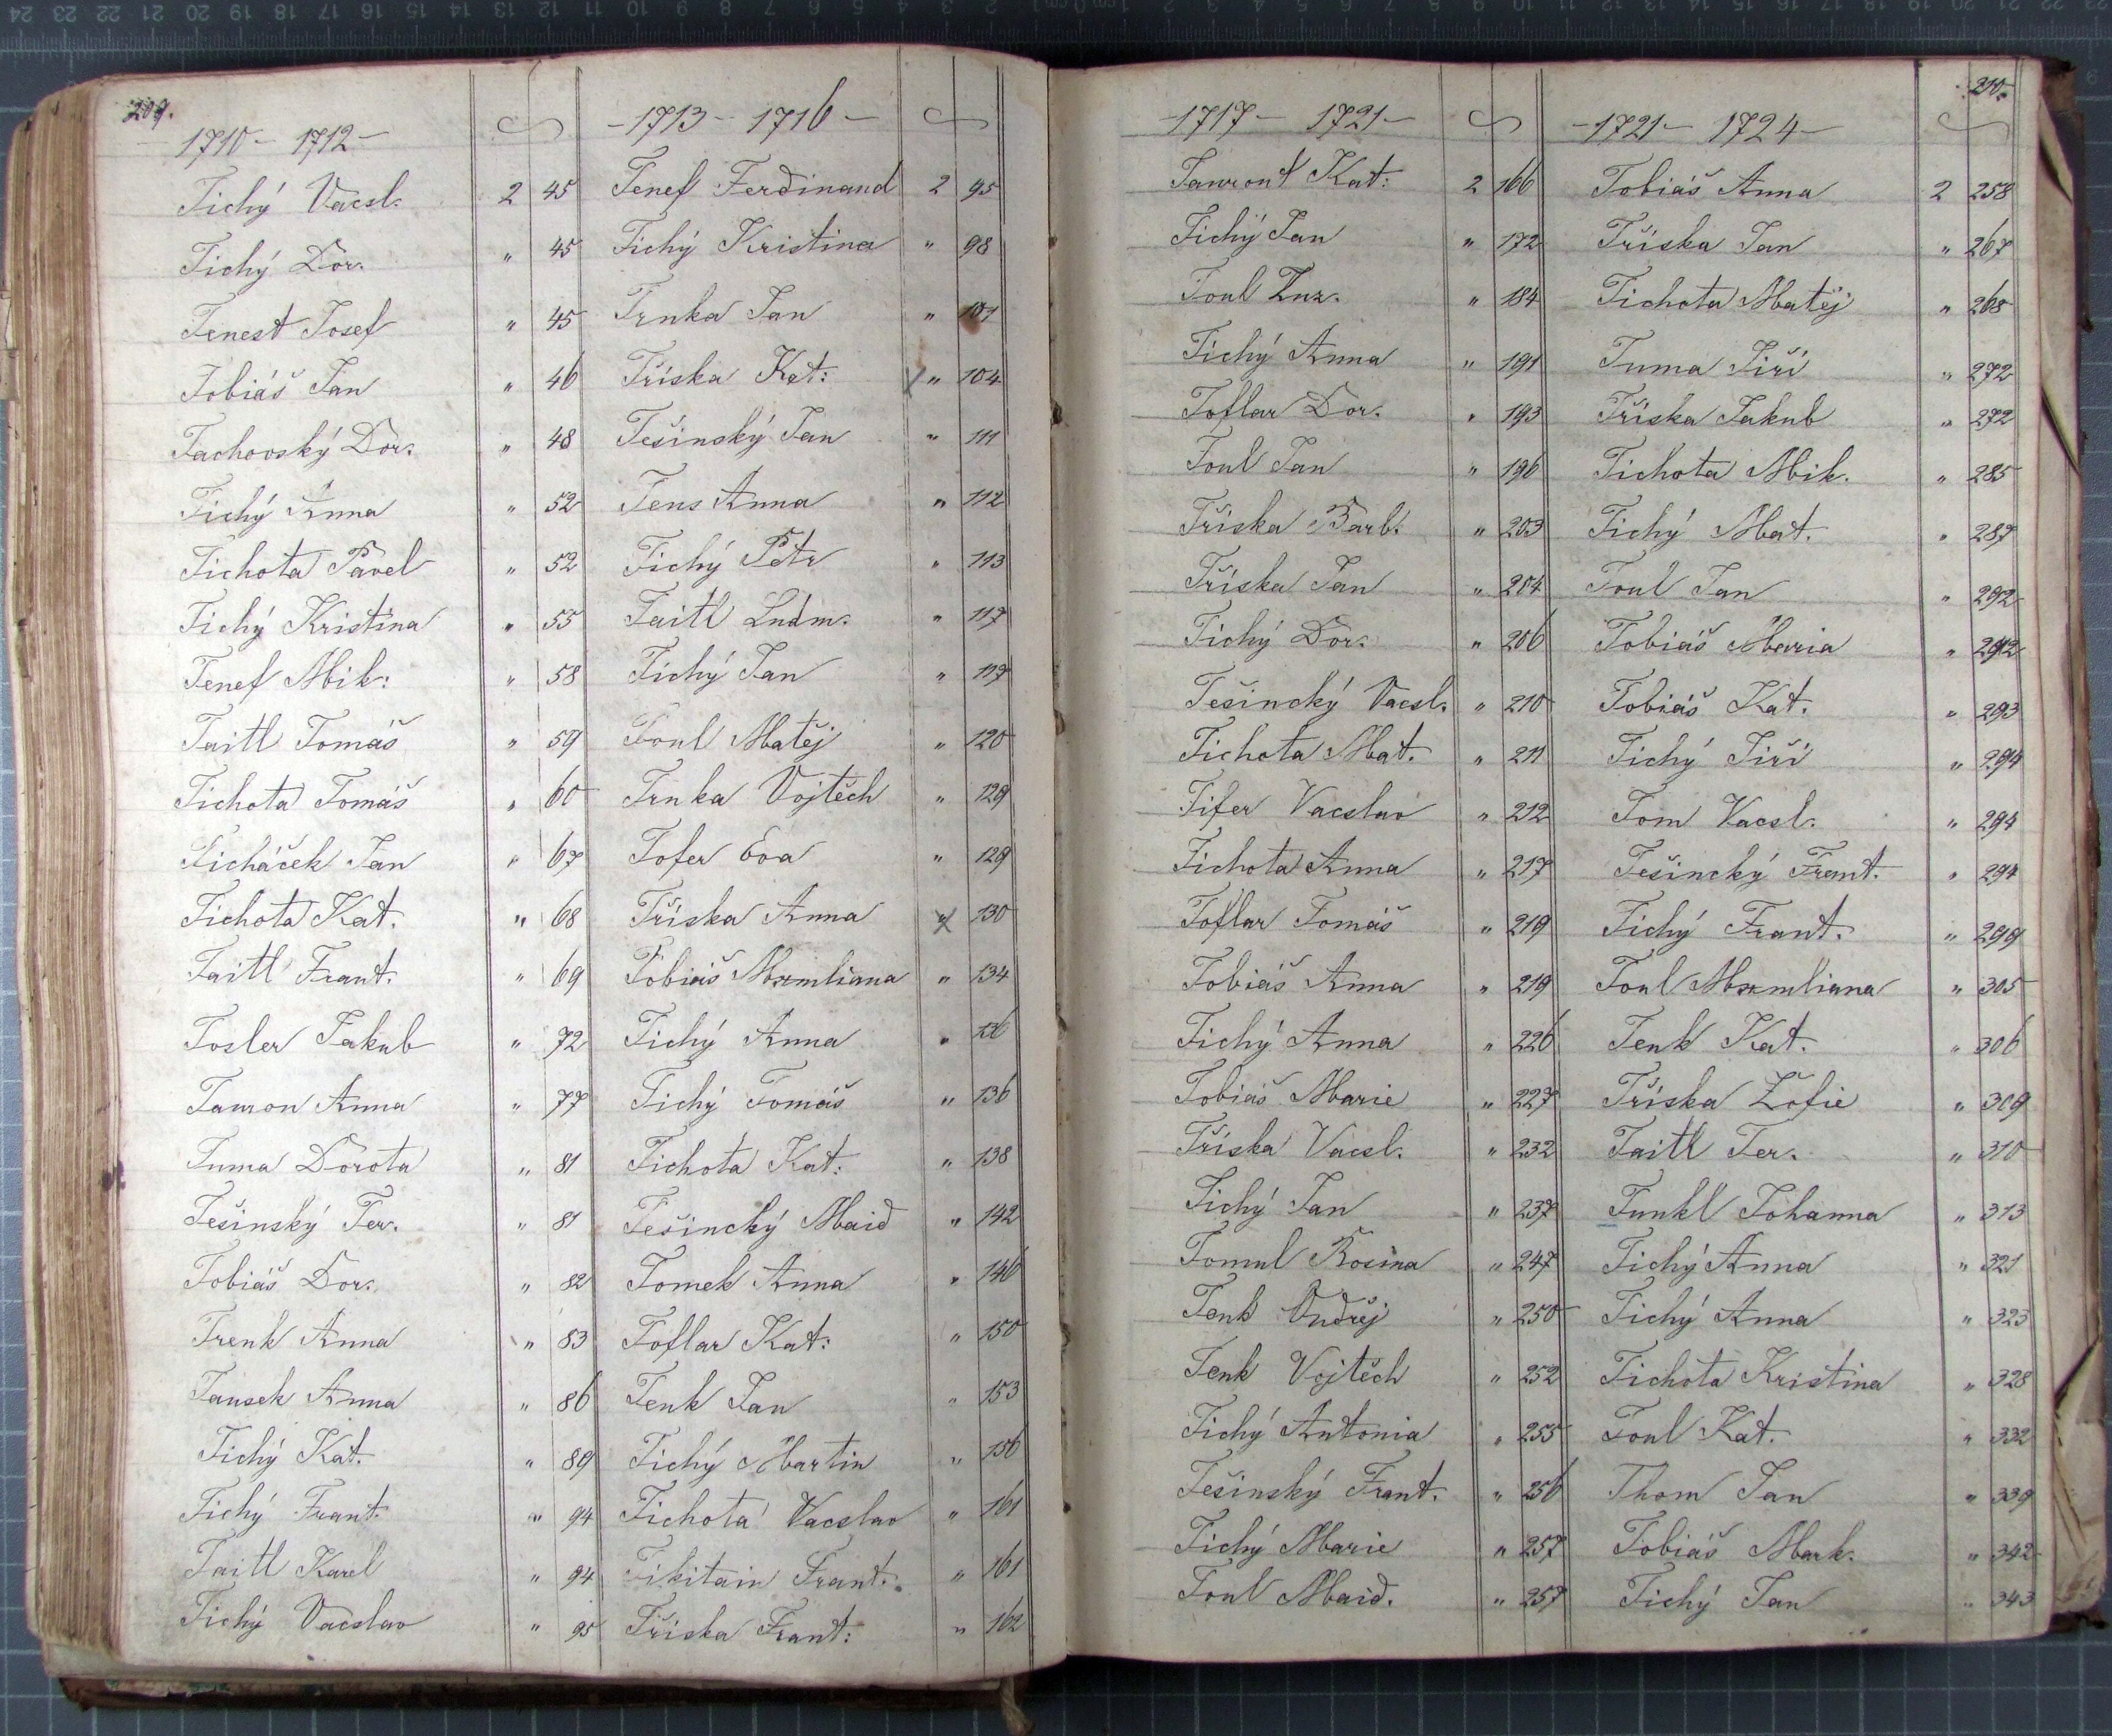 209.
1710 - 1712
Tichý Vacsl. 2 45
Tichý Dor. " 45
Tenest Josef " 45
Tobiáš Jan " 46
Tachovský Dor. " 48
Tichý Anna " 52
Tichota Pavel " 52
Tichý Kristina " 55
Tenef Mik: " 58
Taitl Tomáš " 59
Tichota Tomáš " 60
Ticháček Jan " 67
Tichota Kat. " 68
Taitl Frant. " 69
Tosler Jakub " 72
Tamron Anna " 77
Tuma Dorota " 81
Tešinský Ter. " 81
Tobiáš Dor. " 82
Trenk Anna " 83
Tansek Anna " 86
Tichý Kat. " 89
Tichý Frant. " 94
Taitl Karel " 94
Tichý Vacslav " 95
- 1713 - 1716 -
Tenef Ferdinand 2 95
Tichý Kristina " 98
Trnka Jan " 101
Tříska Kat: " 104
Tešinský Jan " 111
Tens Anna " 112
Tichý Petr " 113
Taitl Ludm. " 117
Tichý Jan " 117
Toul Matěj " 120
Trnka Vojtěch " 129
Tofer Eva " 129
Tříska Anna " 130
Tobiáš Mxmliana " 134
Tichý Anna " 136
Tichý Tomáš " 136
Tichota Kat: " 138
Tešincký Maid " 142
Tomek Anna " 146
Toflar Kat: " 150
Tenk Jan " 153
Tichý Martin " 156
Tichota Vacslav " 161
Tikitain Frant. " 161
Tříska Frant: " 162
- 1717 - 1721 -
Kat: 2 166
Tichý Jan " 172
Toul " 184
Tichý Anna " 191
Toflar Dor. " 193
Toul Jan " 196
Tříska Barb. " 203
Tříska Jan " 204
Tichý Dor. " 206
Tešincký Vacsl. " 210
Tichota Mat. " 211
Tifer Vacslav " 212
Tichota Anna " 217
Toflar Tomáš " 219
Tobiáš Anna " 219
Tichý Anna " 226
Tobiáš Marie " 227
Tříska Vacsl. " 232
Tichý Jan " 237
Tomul Rosina " 247
Tenk Ondřej " 250
Tenk Vojtěch " 252
Tichý Antonia " 255
Tešinský Frant. " 256
Tichý Marie " 257
Toul Maid. " 257
210.
- 1721 - 1724 -
Tobiáš Anna 2 258
Tříska Jan " 267
Tichota Matěj " 268
Tuma Jiří " 272
Tříska Jakub " 272
Tichota Mik. " 285
Tichý Mat. " 287
Toul Jan " 292
Tobiáš Maria " 292
Tobiáš Kat. " 293
Tichý Jiří " 294
Tom Vacsl. " 294
Tešincký Frant. " 294
Tichý Frant. " 299
Toul Mxmliana " 305
Tenk Kat. " 306
Tříska Žofie " 309
Taitl Ter. " 310
Tunkl Johanna " 313
Tichý Anna " 321
Tichý Anna " 323
Tichota Kristina " 328
Toul Kat. " 332
Thom Jan " 339
Tobiáš Mark. " 342
Tichý Jan " 343